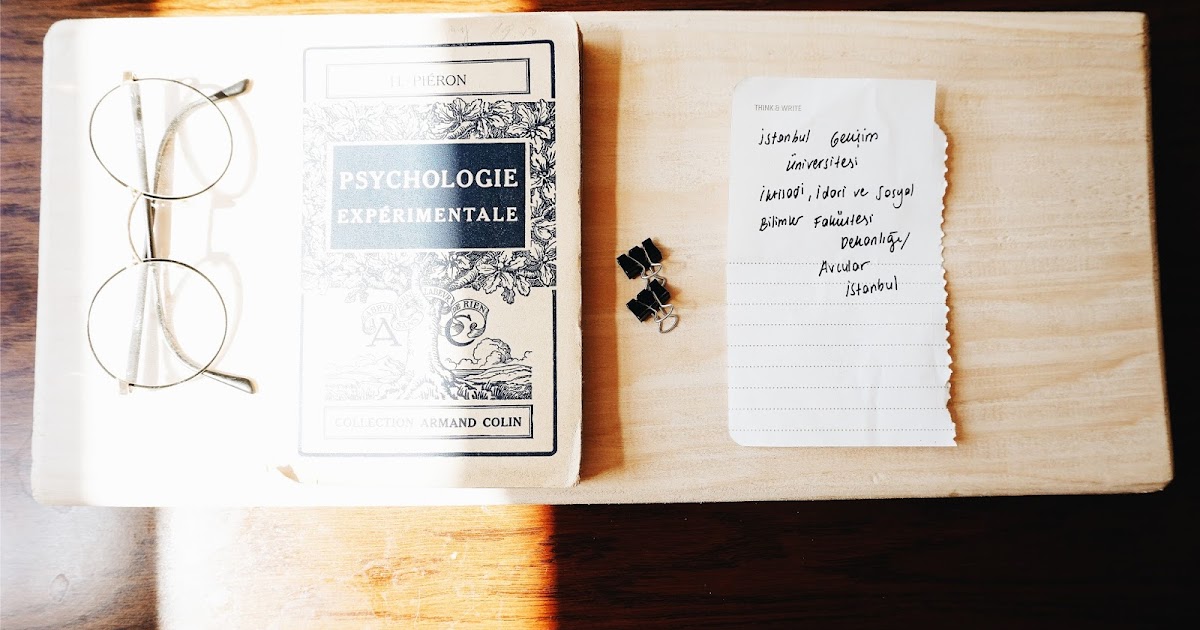 H. PIÉRON
PSYCHOLOGIE
EXPÉRIMENTALE
A C
COLLECTION ARMAND COLIN
THINK & WRITE
İstanbul Gelişim
Üniversitesi
İktisadi, idari ve Sosyal
Bilimler Fakültesi
Dekanlığı/
Avcılar
istanbul